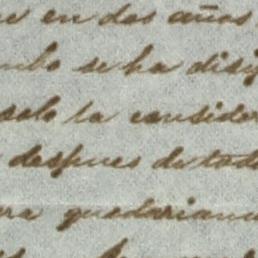 en dos años
se ha
solo la consider
despues de todo
quedariamo